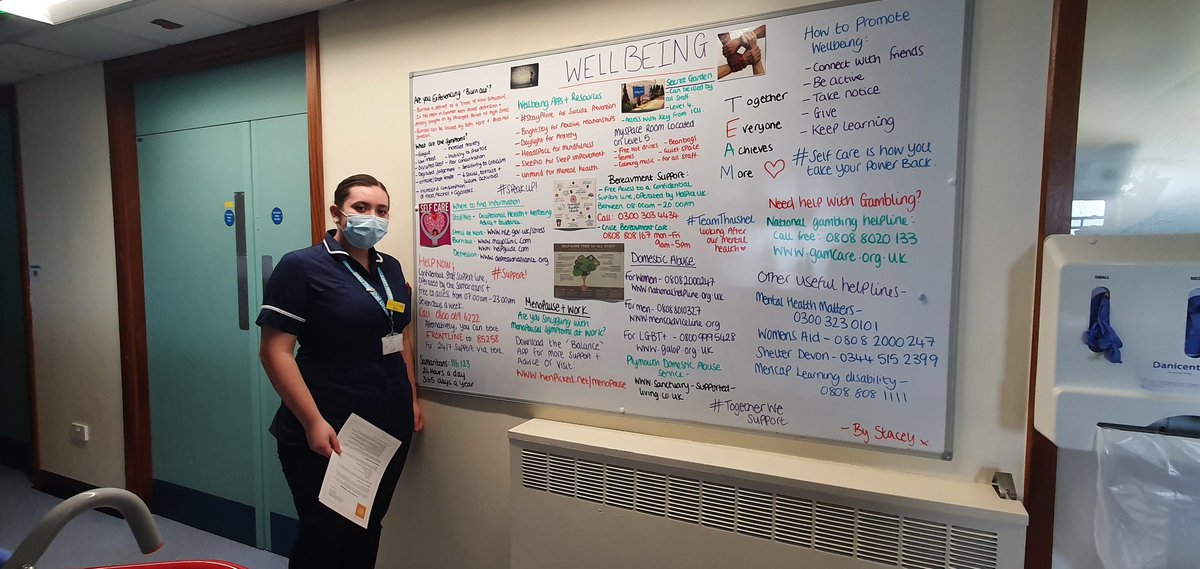 WELLBEING
Are you Experiencing 'Burnout'?
What are the Symptoms?
SELF CARE
Where to find Information
Staff Net - Occupational Health + Wellbeing
Advice + Guidance.
Stress at Work - www.hse.gov.uk/stress
Burnout - www.mayoclinic.com
www.helpguide.com
Depression - www.depressionalliance.org
HELP NOW;
Confidential Staff Support Line,
operated by the Samaritans +
Free to access from 07:00am - 23:00pm
Seven days a week.
Call: 0800 069 6222
Alternatively, you can text
FRONTLINE to 85258
For 24/7 support via text
#Support!
Samaritans: 116 123
24 Hours a day
365 days a year
Wellbeing Apps + Resources
- #StayAlive for Suicide Prevention
- BrightSky for Abusive relationships
- Daylight for Anxiety
- HeadSpace for Mindfulness
- Sleepio for Sleep Improvement
- Unmind for Mental health
#SPEAKUP!
Menopause + Work
Are you Struggling with
Menopausal Symptoms at Work?
Download the 'Balance'
App for more Support +
Advice or Visit:
www.henpicked.net/menopause
Secret Garden
- Can be used by
all Staff.
- Level 4
- Access with key from ICU.
MySpace Room Located
on Level 5.
- Free Hot drinks
- Beanbags
- Games
- Quiet Space
- Calming music
- For all Staff.
Bereavement Support:
- Free Access to a Confidential
Support Line, operated by Hospice UK.
Between 08:00am - 20:00pm
Call: 0300 303 4434
- Cruse Bereavement Care:
0808 808 167 mon-Fri
9am-5pm
Domestic Abuse
For Women - 0808 2000247
www.nationalhelpline.org.uk
For men - 0808 8010327
www.mensadviceline.org
For LGBT+ - 0800 999 5428
www.galop.org.uk
Plymouth Domestic Abuse
Service -
www.sanctuary-supported-
living.co.uk
Together
Everyone
Achieves
More
#TeamThrushel
Looking After
our mental
health
#Together We
Support
How to Promote
Wellbeing:
- Connect with friends
- Be active
- Take notice
- Give
- Keep Learning
#Self Care is how you
take your Power Back.
Need help with Gambling?
National gambling helpline:
Call free: 0808 8020 133
www.gamcare.org.uk
Other useful helplines -
Mental Health Matters -
0300 323 0101
Womens Aid - 0808 2000 247
Shelter Devon - 0344 515 2399
Mencap Learning disability -
0808 808 1111
- By Stacey x
SMALL
Danicent